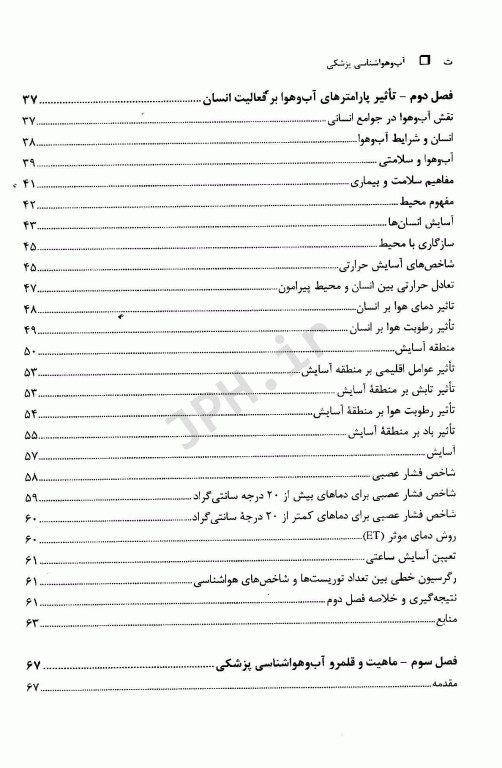 ت □ آب‌وهواشناسی پزشکی
فصل دوم – تأثیر پارامترهای آب‌وهوا بر فعالیت انسان ..... ۳۷
نقش آب‌وهوا در جوامع انسانی ..... ۳۷
انسان و شرایط آب‌وهوا ..... ۳۸
آب‌وهوا و سلامتی ..... ۳۹
مفاهیم سلامت و بیماری ..... ۴۱
مفهوم محیط ..... ۴۲
آسایش انسان‌ها ..... ۴۳
سازگاری با محیط ..... ۴۵
شاخص‌های آسایش حرارتی ..... ۴۵
تعادل حرارتی بین انسان و محیط پیرامون ..... ۴۷
تاثیر دمای هوا بر انسان ..... ۴۸
تأثیر رطوبت هوا بر انسان ..... ۴۹
منطقه آسایش ..... ۵۰
تأثیر عوامل اقلیمی بر منطقه آسایش ..... ۵۳
تأثیر تابش بر منطقهٔ آسایش ..... ۵۳
تأثیر رطوبت هوا بر منطقهٔ آسایش ..... ۵۴
تأثیر باد بر منطقهٔ آسایش ..... ۵۵
آسایش ..... ۵۷
شاخص فشار عصبی ..... ۵۸
شاخص فشار عصبی برای دماهای بیش از ۲۰ درجه سانتی‌گراد ..... ۵۹
شاخص فشار عصبی برای دماهای کمتر از ۲۰ درجهٔ سانتی‌گراد ..... ۶۰
روش دمای موثر (ET) ..... ۶۰
تعیین آسایش ساعتی ..... ۶۱
رگرسیون خطی بین تعداد توریست‌ها و شاخص‌های هواشناسی ..... ۶۱
نتیجه‌گیری و خلاصه فصل دوم ..... ۶۱
منابع ..... ۶۳
فصل سوم – ماهیت و قلمرو آب‌وهواشناسی پزشکی ..... ۶۷
مقدمه ..... ۶۷
JPH.ir